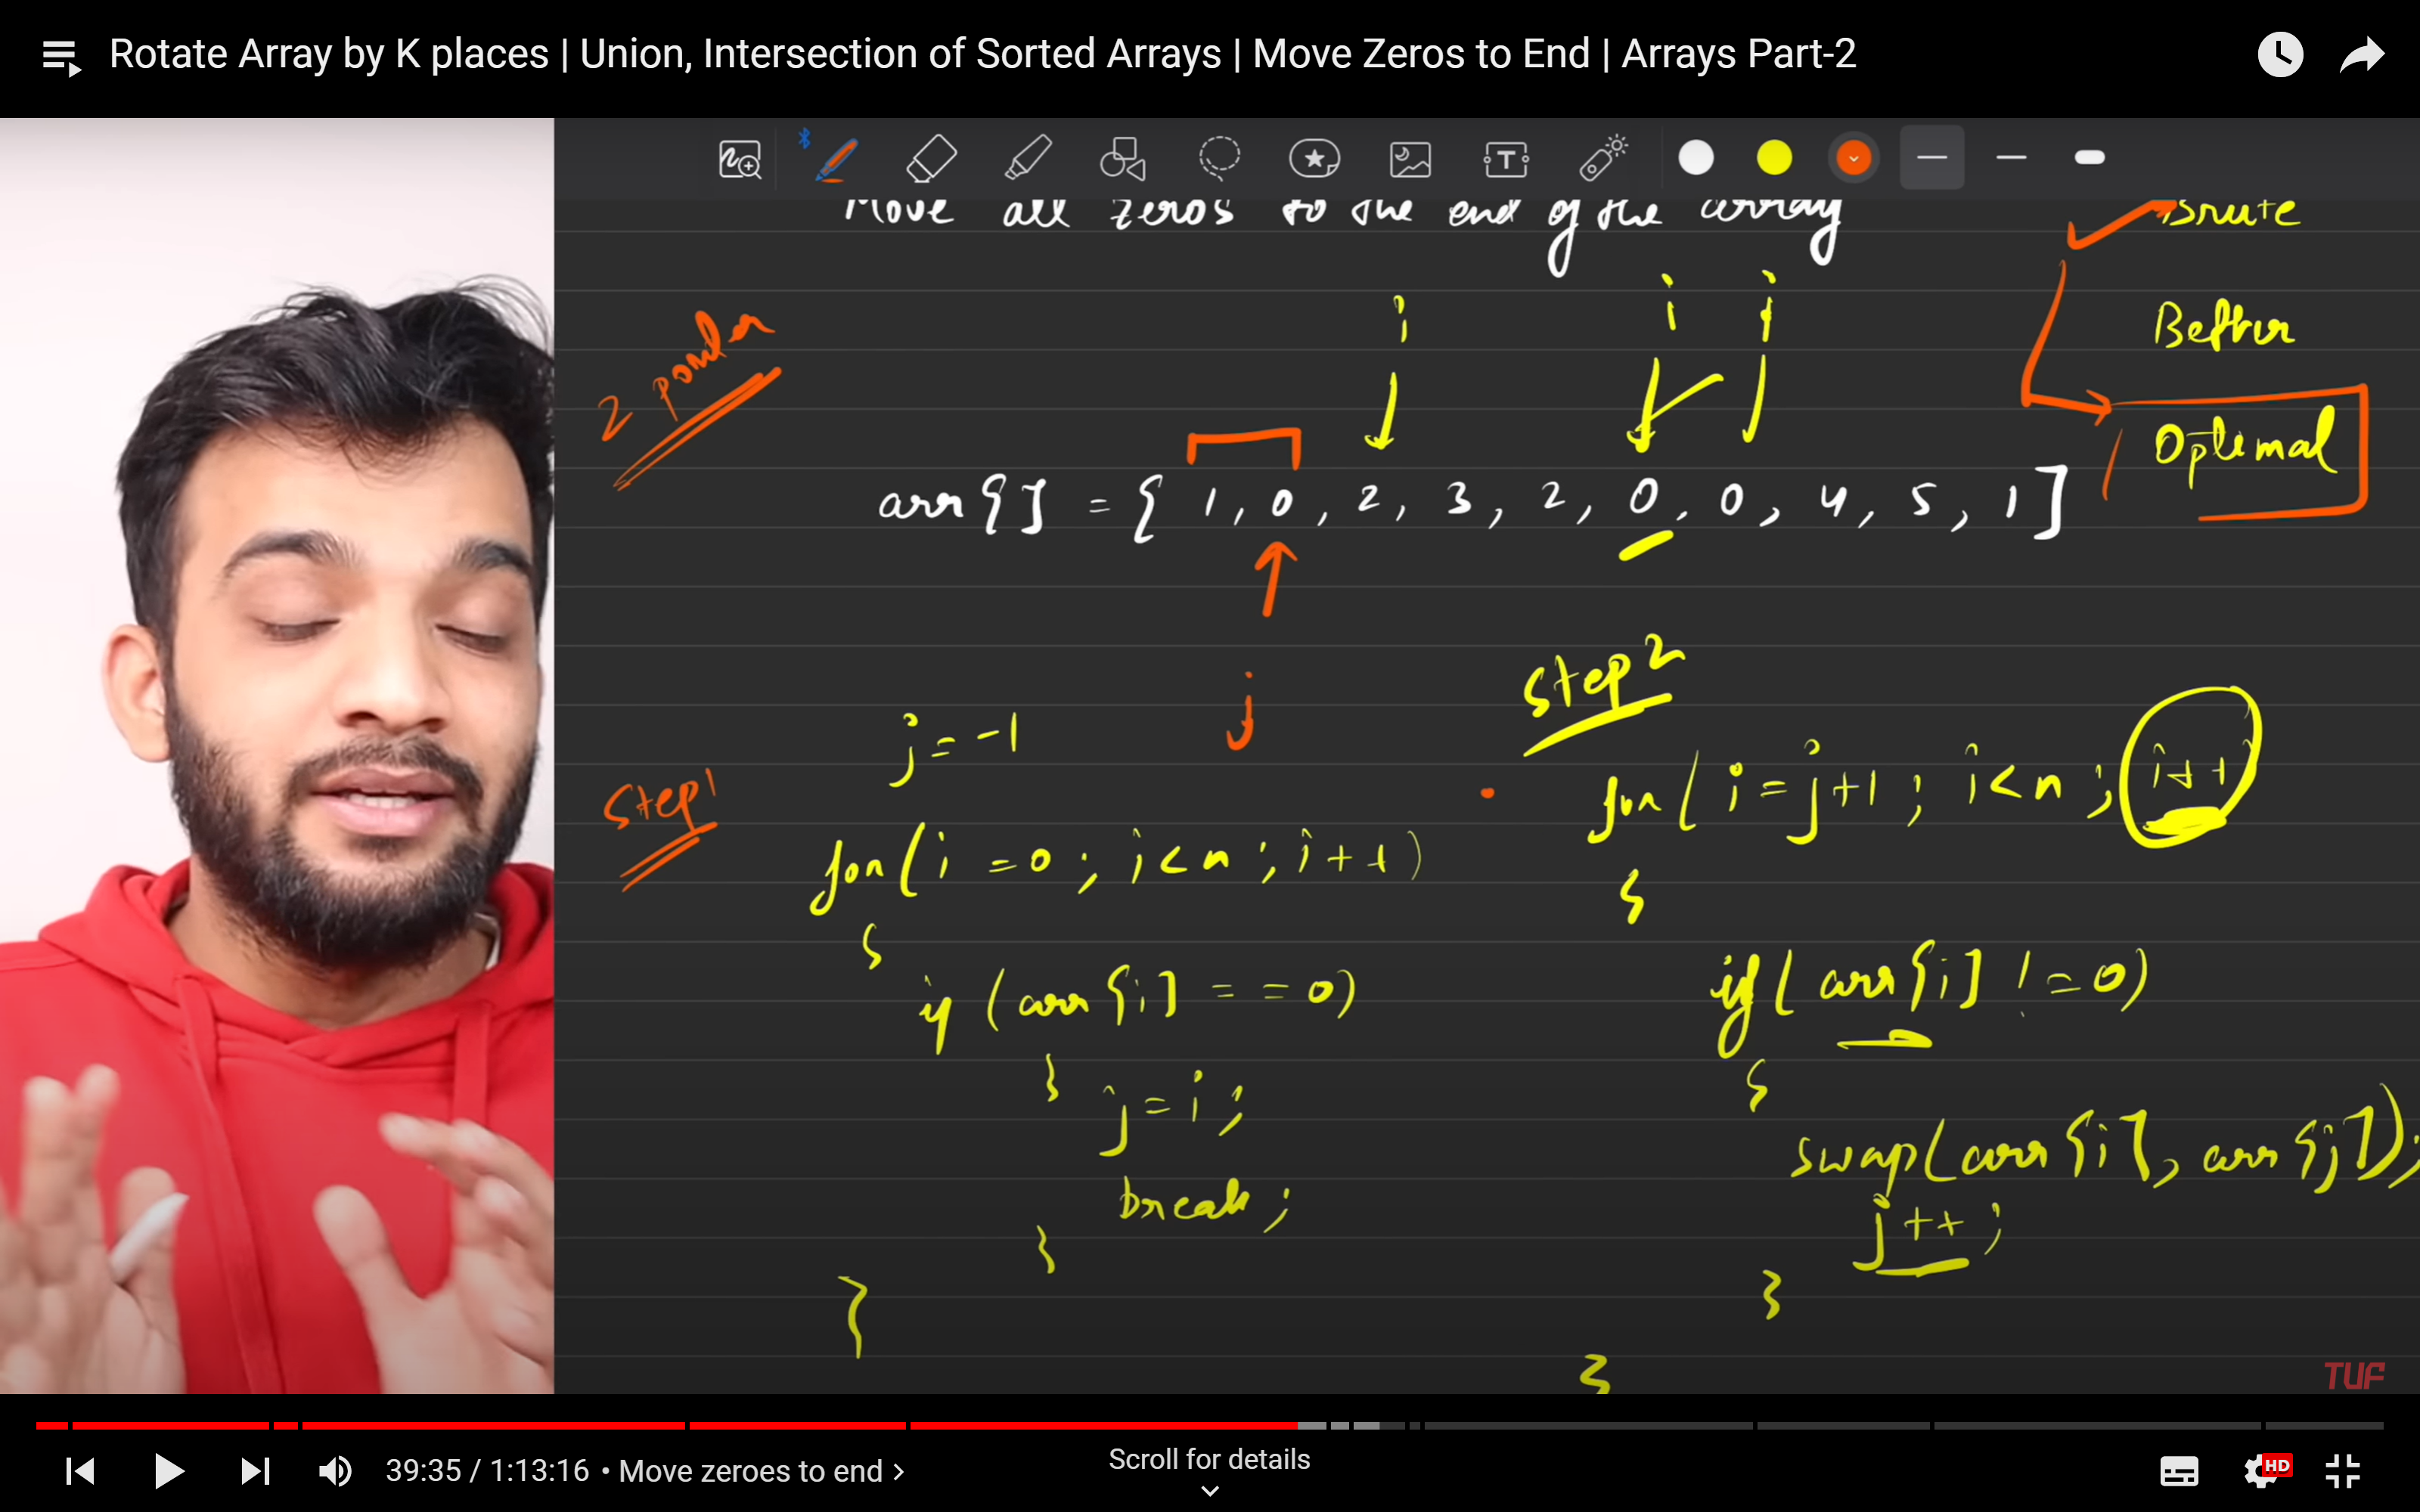 Rotate Array by K places | Union, Intersection of Sorted Arrays | Move Zeros to End | Arrays Part-2
Move all zeros to the end of the array
Brute
Better
Optimal
2 pointer
i i j
arr[] = { 1, 0, 2, 3, 2, 0, 0, 4, 5, 1]
j
Step1
j = -1
for(i = 0; i<n; i++)
{
if (arr[i] == 0)
{ j = i;
break;
}
}
Step 2
for(i = j+1; i<n; i++)
{
if(arr[i] != 0)
{
swap(arr[i], arr[j]);
j++;
}
}
TUF
39:35 / 1:13:16 • Move zeroes to end >
Scroll for details
HD